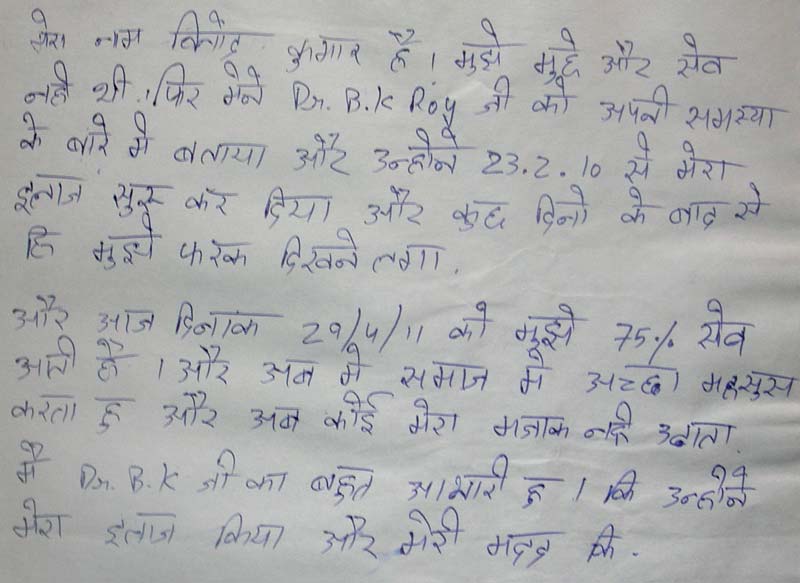 मेरा नाम विनोद कुमार है। मुझे मुछे और सेव
नही थी। फिर मेने Dr. B.K Roy जी को अपनी समस्या
के बारे मे बताया और उन्होने 23.2.10 से मेरा
इलाज सुरू कर दिया और कुछ दिनो के बाद से
हि मुझे फरक दिखने लगा.
और आज दिनाक 29/4/11 को मुझे 75% सेव
आती है। और अब मे समाज मे अच्छा महसुस
करता हु और अब कोई मेरा मजाक नही उडाता.
मै Dr. B.K जी का बहुत आभारी हु। कि उन्होने
मेरा इलाज किया और मेरी मदद कि.